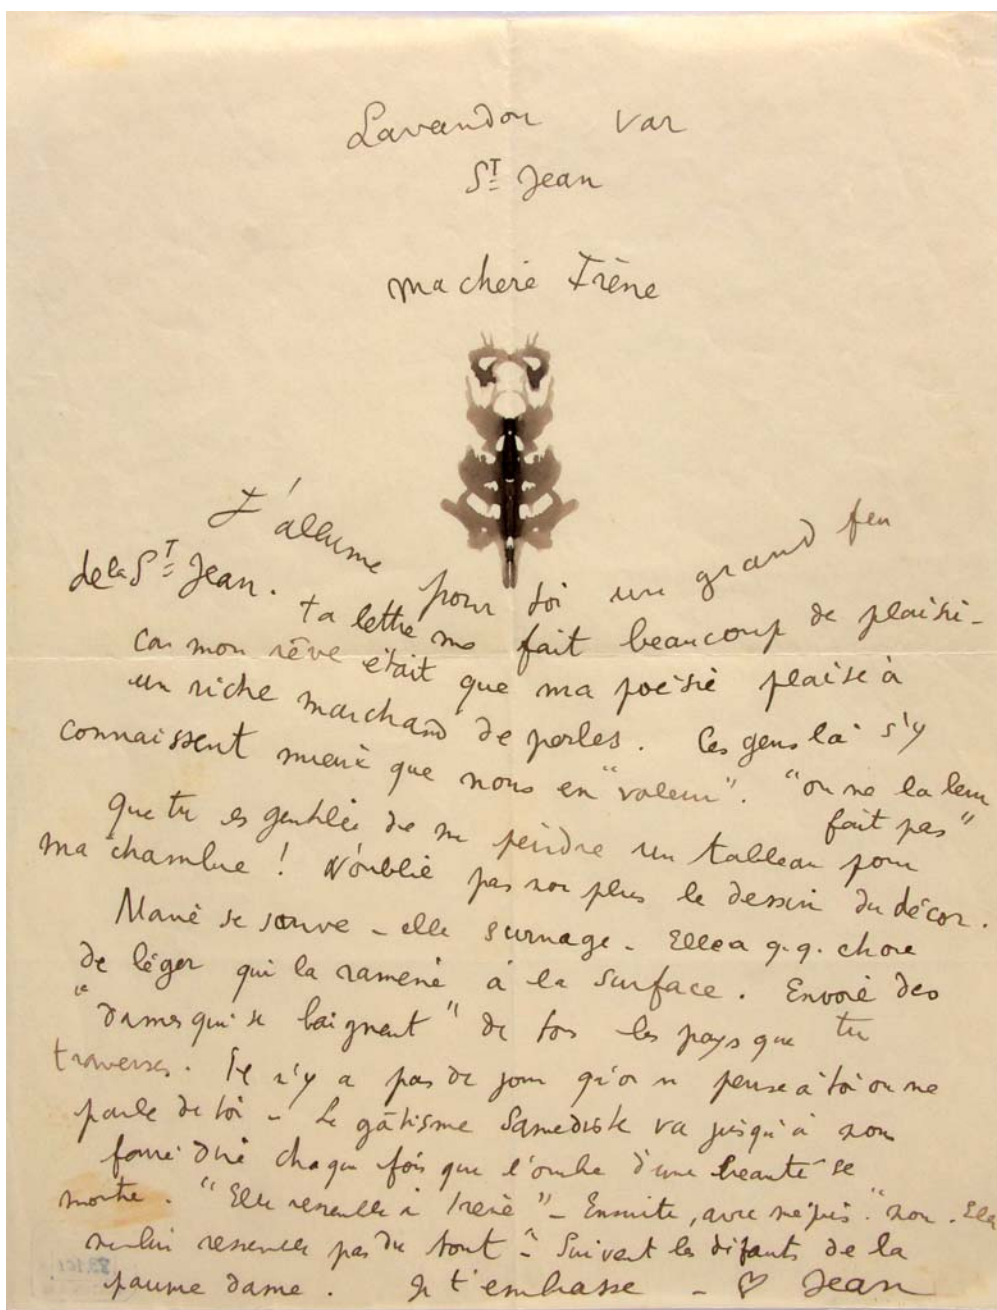 Lavandou Var
St Jean
ma chère Irène
J'allume pour toi un grand feu
de la St Jean. Ta lettre me fait beaucoup de plaisir
car mon rêve était que ma poésie plaise à
un riche marchand de perles. Ces gens là s'y
connaissent mieux que nous en "valeur". "on ne la leur
fait pas"
Que tu es gentille de me peindre un tableau pour
ma chambre ! N'oublie pas non plus le dessin du décor.
se sauve - elle surnage - Elle a q.q. chose
de léger qui la ramène à la surface. Envoie des
"dames qui se baignent" de tous les pays que tu
traverses. Il n'y a pas de jour qu'on ne pense à toi ou ne
parle de toi - Le gâtisme Samediste va jusqu'à nous
faire dire chaque fois que l'ombre d'une beauté se
montre. "Elle ressemble à Irène" - Ensuite, avec mépris : "non. Elle
ne lui ressemble pas du tout" - Suivent les défauts de la
pauvre dame. Je t'embrasse - ♡ Jean